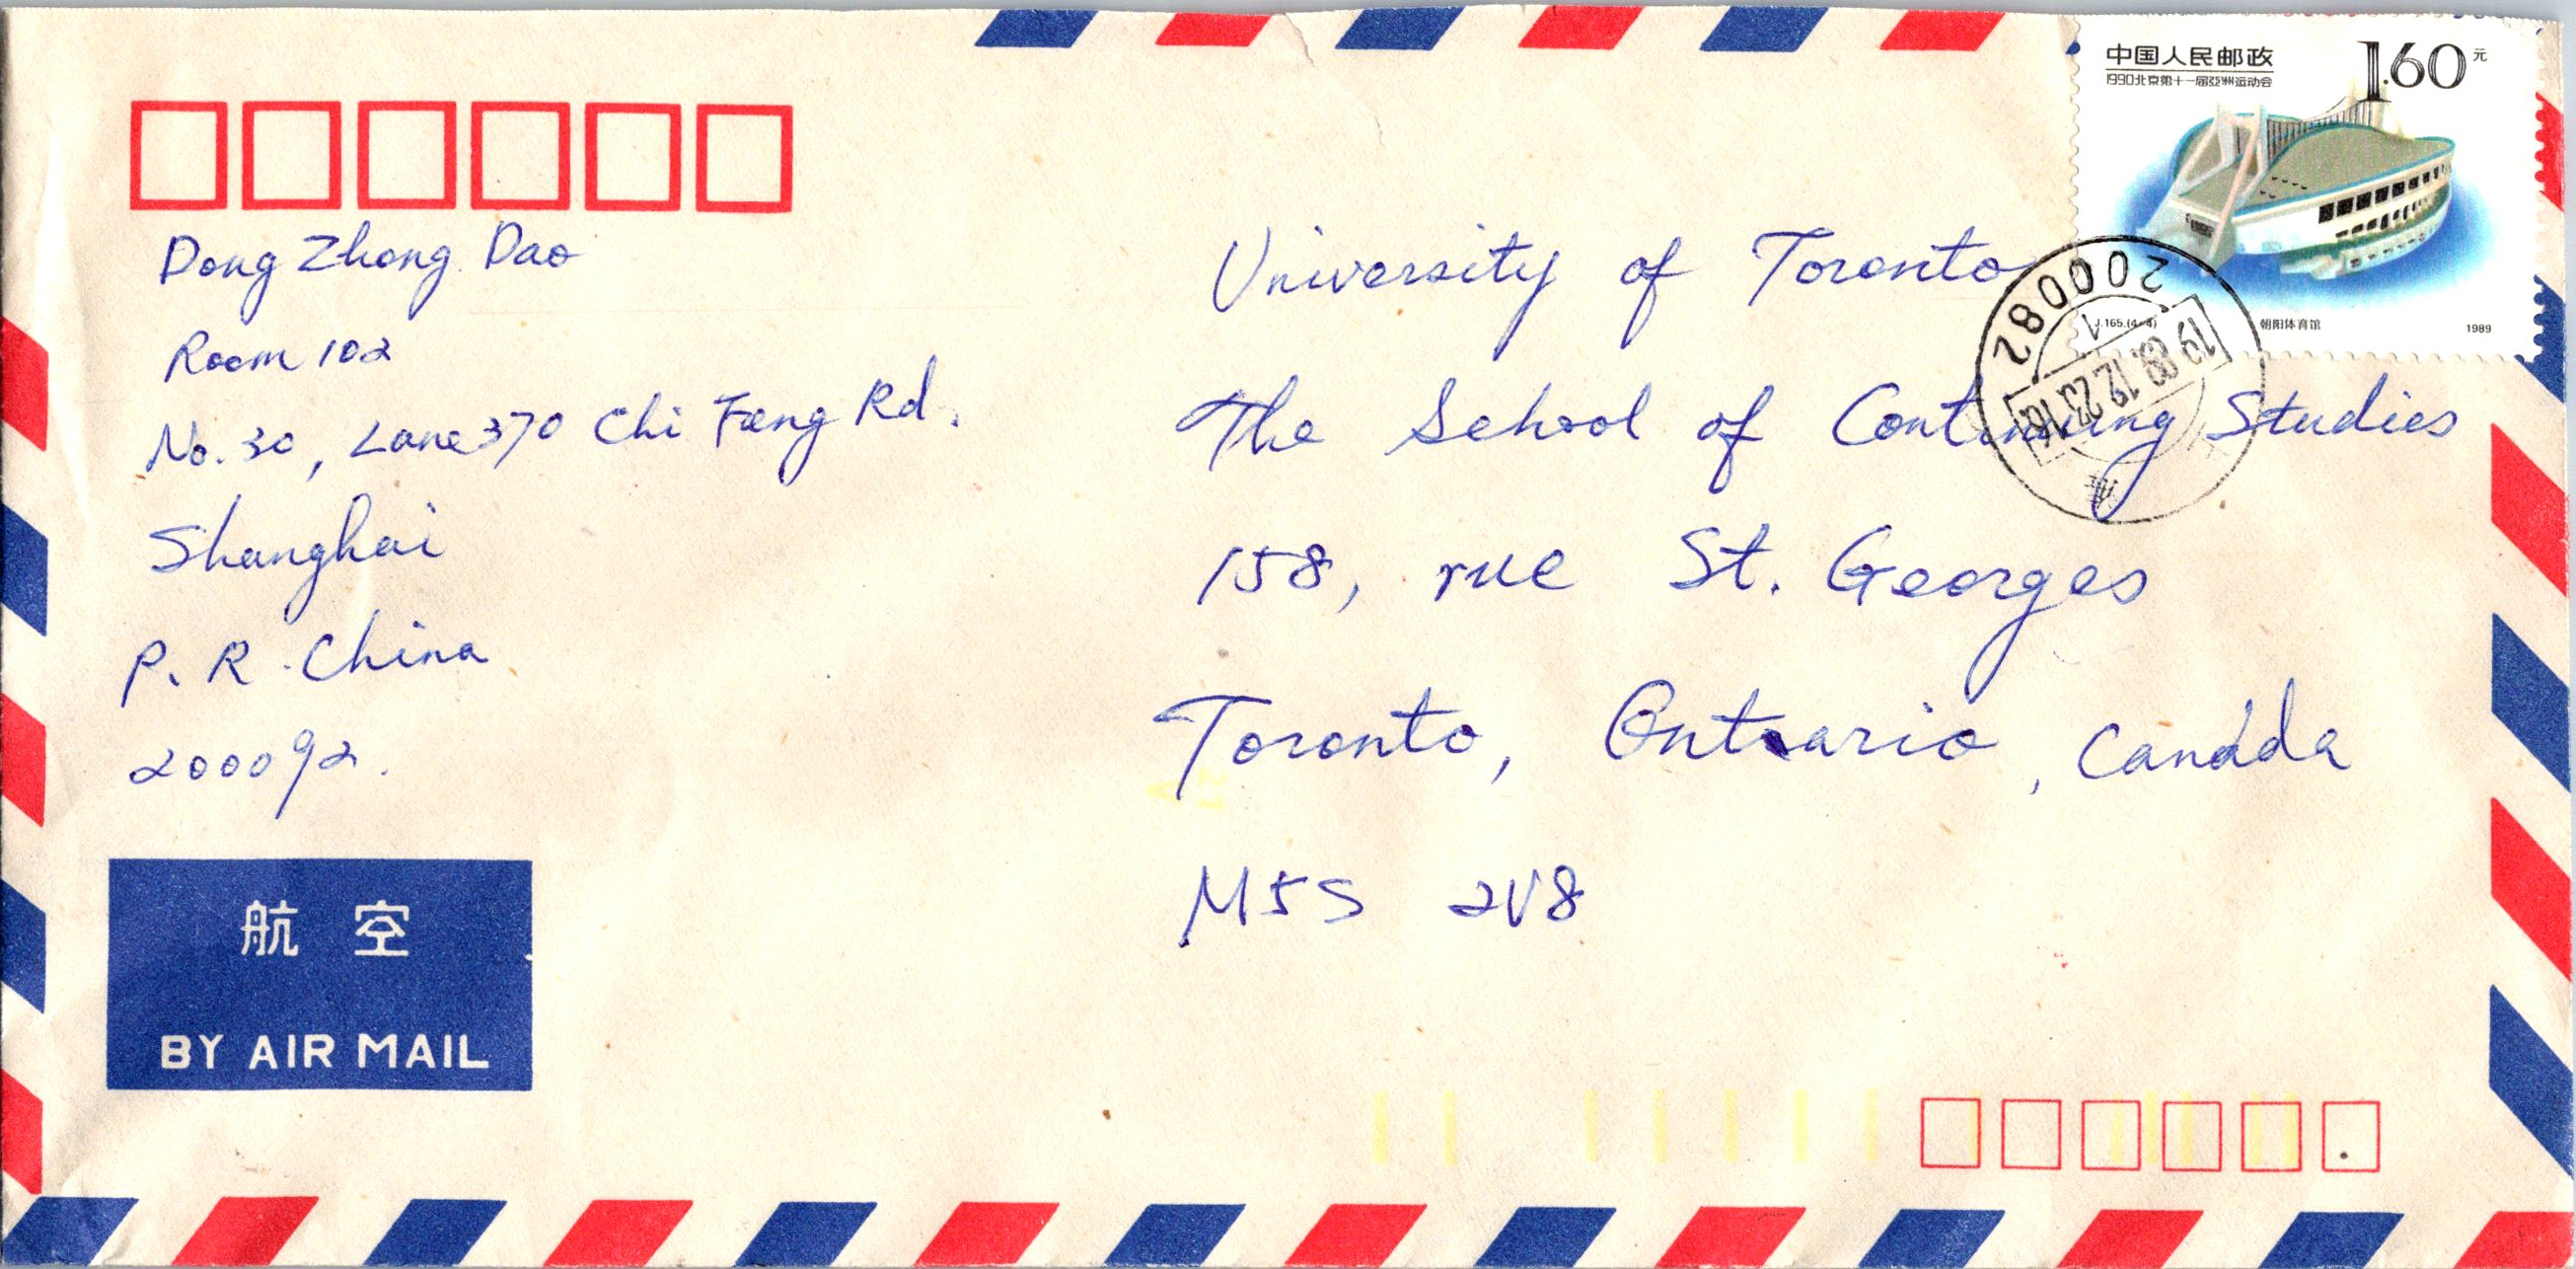 中国人民邮政
1990北京第十一届亞洲运动会
1.60元
J.165.(4-4)
朝阳体育馆
1989
200082
1
1989.12.23.16
Dong Zhong Dao
Room 102
No. 30, Lane 370 Chi Feng Rd.
Shanghai
P. R. China
200092.
University of Toronto
The School of Continuing Studies
158, rue St. Georges
Toronto, Ontario, Canada
M5S 2V8
航空
BY AIR MAIL